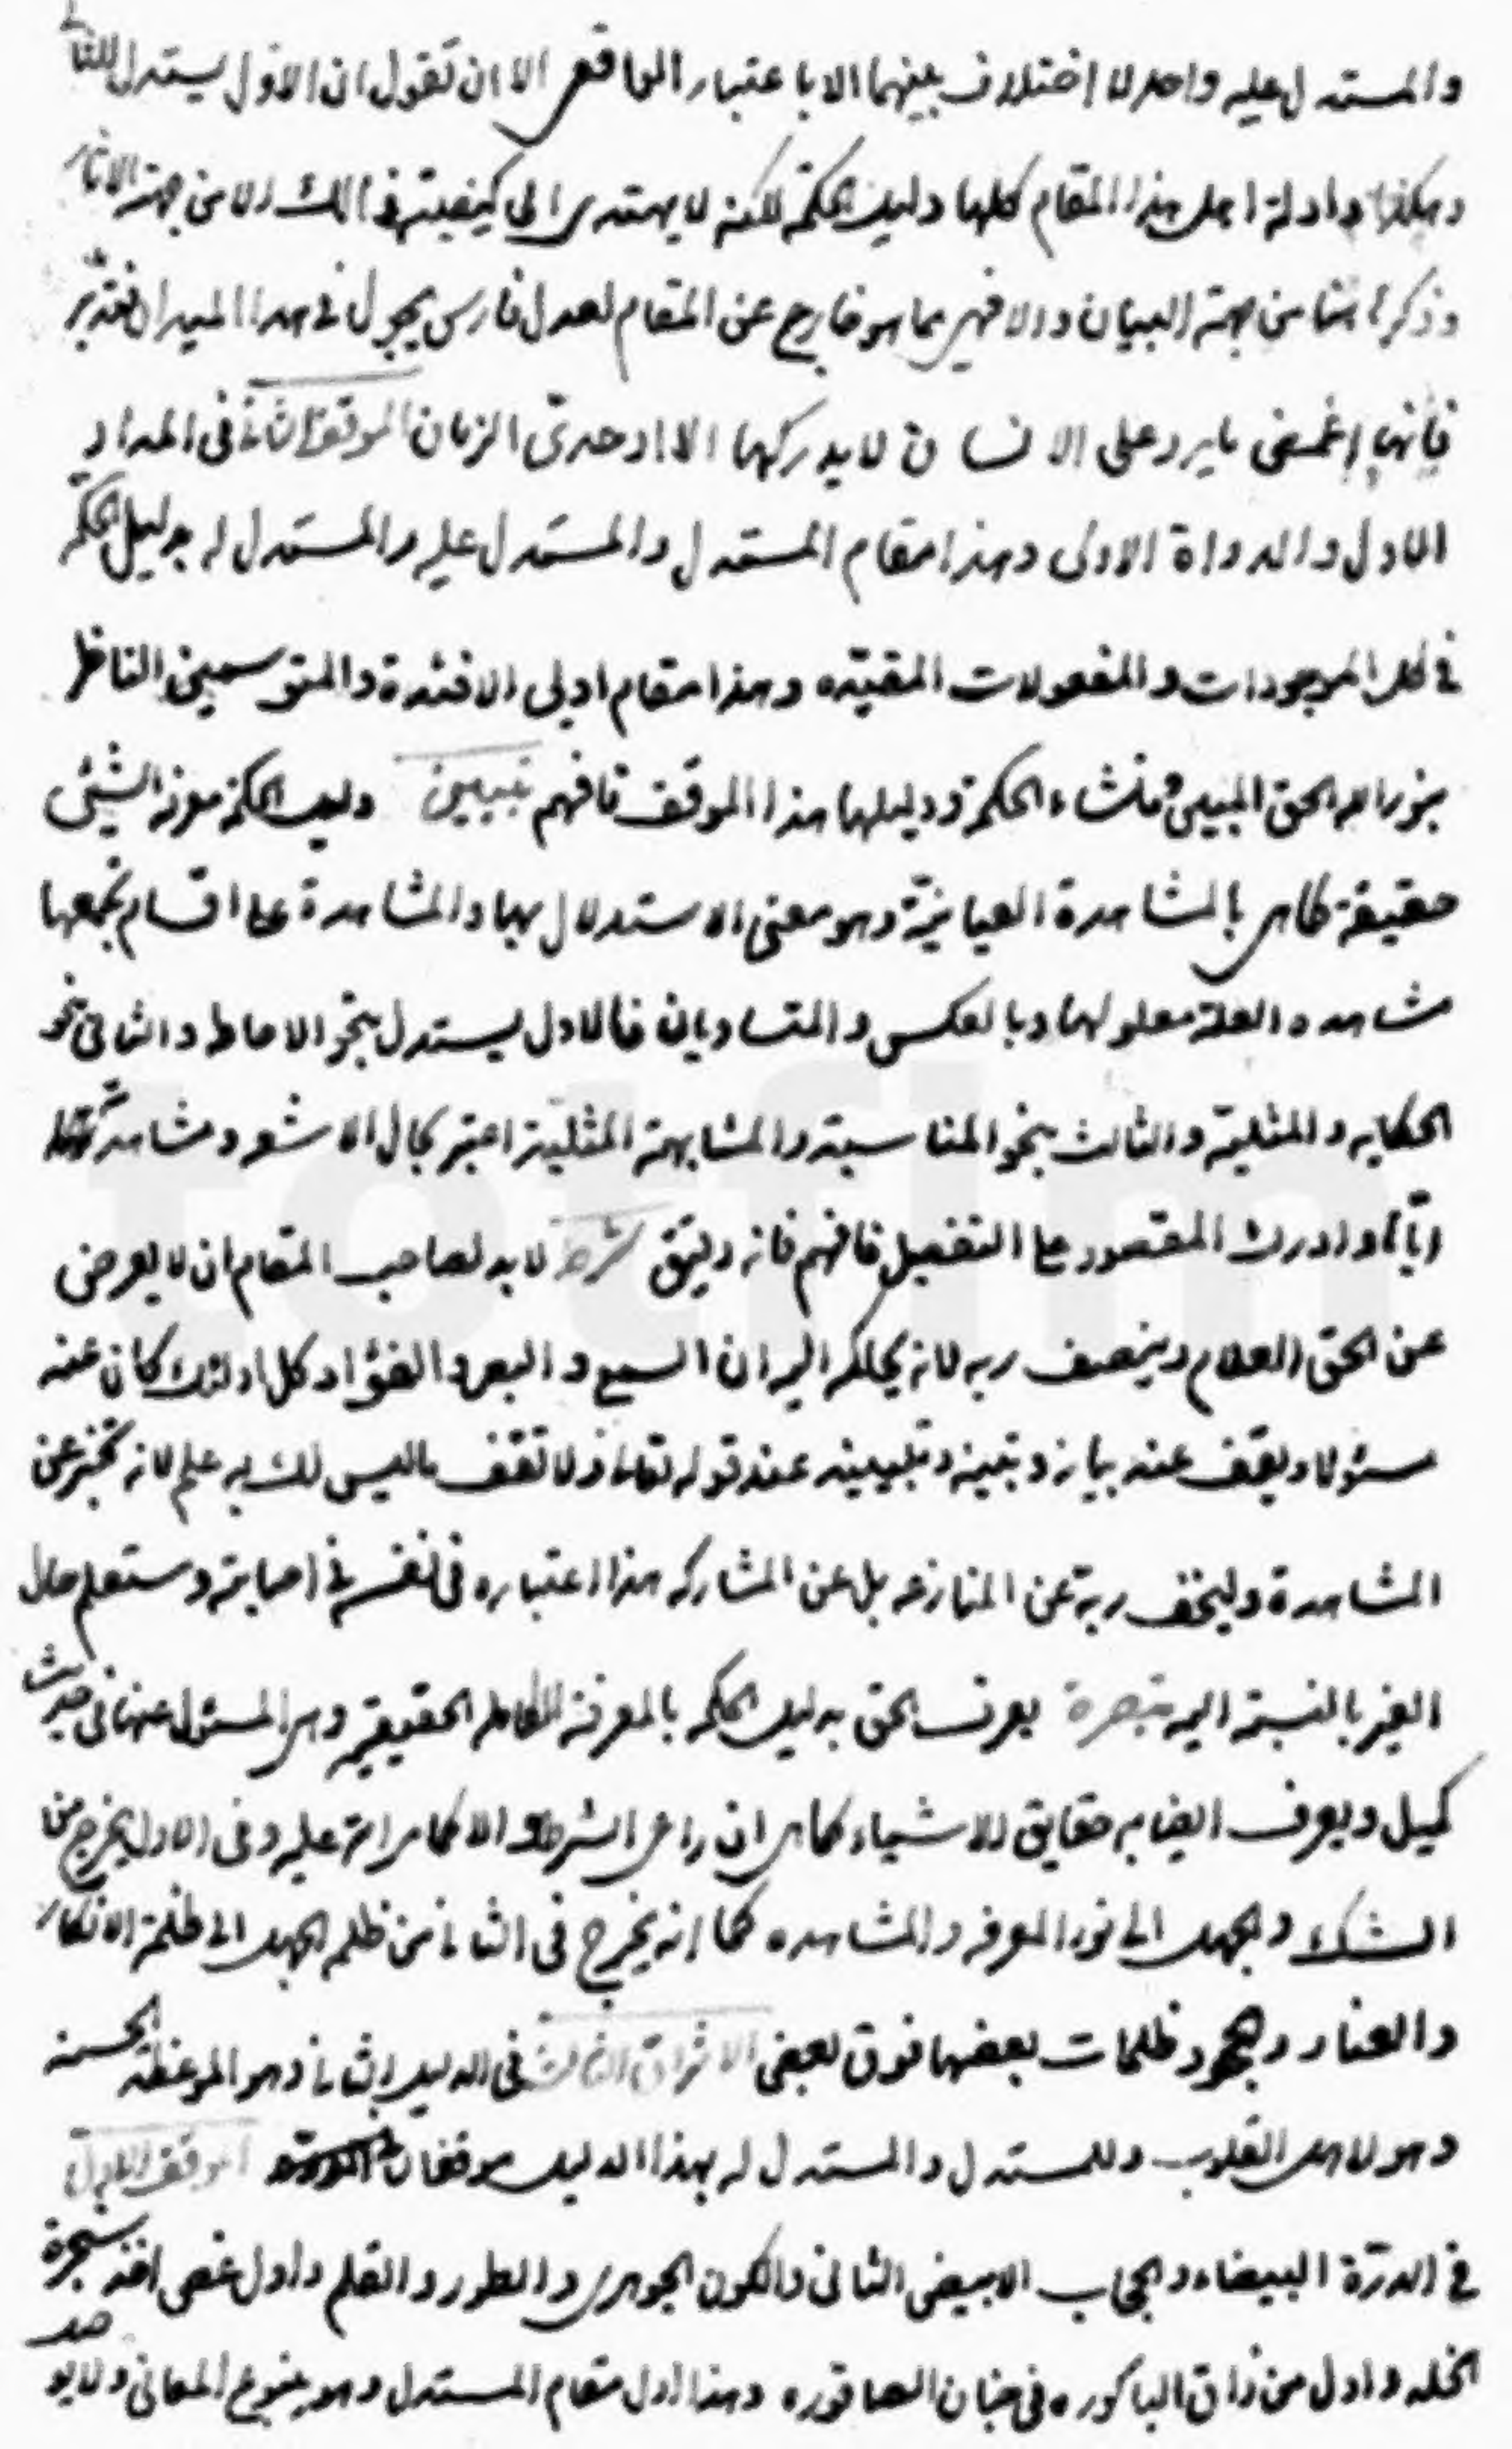 والمستدل عليه واحد لا اختلاف بينهما الا باعتبار المواقع الا ان تقول ان الاول يستدل للثاني
وهكذا وادلة اهل هذا المقام كلها دليل الحكمة لكنه لا يهتدي الى كيفيته في المسالك الا من جهة الاثار
وذكرنا من جهة البيان والا فهي مما هو خارج عن المقام لعدل فارس يجول في هذا الميدان فتدبر
فانها اغمض ما يرد على الانسان لا يدركها الا اوحدي الزمان الموقف الثاني في المداد
الاول والدواة الاولى وهذا مقام المستدل والمستدل عليه والمستدل له بدليل الحكمة
في كل الموجودات والمفعولات المقيده وهذا مقام اولي الافئدة والمتوسمين الناظر
بنور الله الحق المبين ومنشاء الحكمة ودليلها هذا الموقف فافهم تبيين دليل الحكمة معرفة الشيئ
حقيقة كما هي بالمشاهدة العيانية وهو معنى الاستدلال بها والمشاهدة على اقسام تجمعها
مشاهده العلة معلولها وبالعكس والمتساويان فالاول يستدل بنحو الاحاطه والثاني نحو
الحكايه والمثلية والثالث بنحو المناسبة والمشابهة المثلية اعتبر بحال الاشعه ومشاهدتها
اياها وادرك المقصود على التفصيل فافهم فانه دقيق شرط لا بد لصاحب المقام ان لا يعرض
عن الحق العلام وينصف ربه لانه يحاكمه اليه ان السمع والبصر والفؤاد كل اولئك كان عنه
مسؤلا ويقف عند بيانه وتبينه وتبيينه عند قوله تعالى ولا تقف ما ليس لك به علم لانه تخبر عن
المشاهدة وليخف ربه عن المنازعه بل عن المشاركه هذا اعتباره في نفسه في اصابته وستعلم حال
الغير بالنسبة اليه تبصرة يعرف الحق بدليل الحكمه بالمعرفة الكامله الحقيقيه وهي المسئول عنها في حديث
كميل ويعرف ايضا به حقايق الاشياء كما هي ان راعى الشرط والا كما مرانه عليه وفي الاول يخرج من
الشك والجهل الى نور المعرفه والمشاهده كما انه يخرج في الثاني من ظلم الجهل الى ظلمة الانكار
والعناد وهجود ظلمات بعضها فوق بعض الاشراق الثالث في الدليل الثاني وهو الموعظة الحسنه
وهو لاهل القلوب وللمستدل والمستدل له بهذا الدليل موقفان الموقف الاول
في الدرة البيضاء والحجاب الابيض الثاني والكون الجوهري والطور والقلم واول غصن اخذ شجرة
الخلد واول من ذاق الباكوره في جنان الصاقوره وهذا اول مقام المستدل وهو ينبوع المعاني ولا يوصد